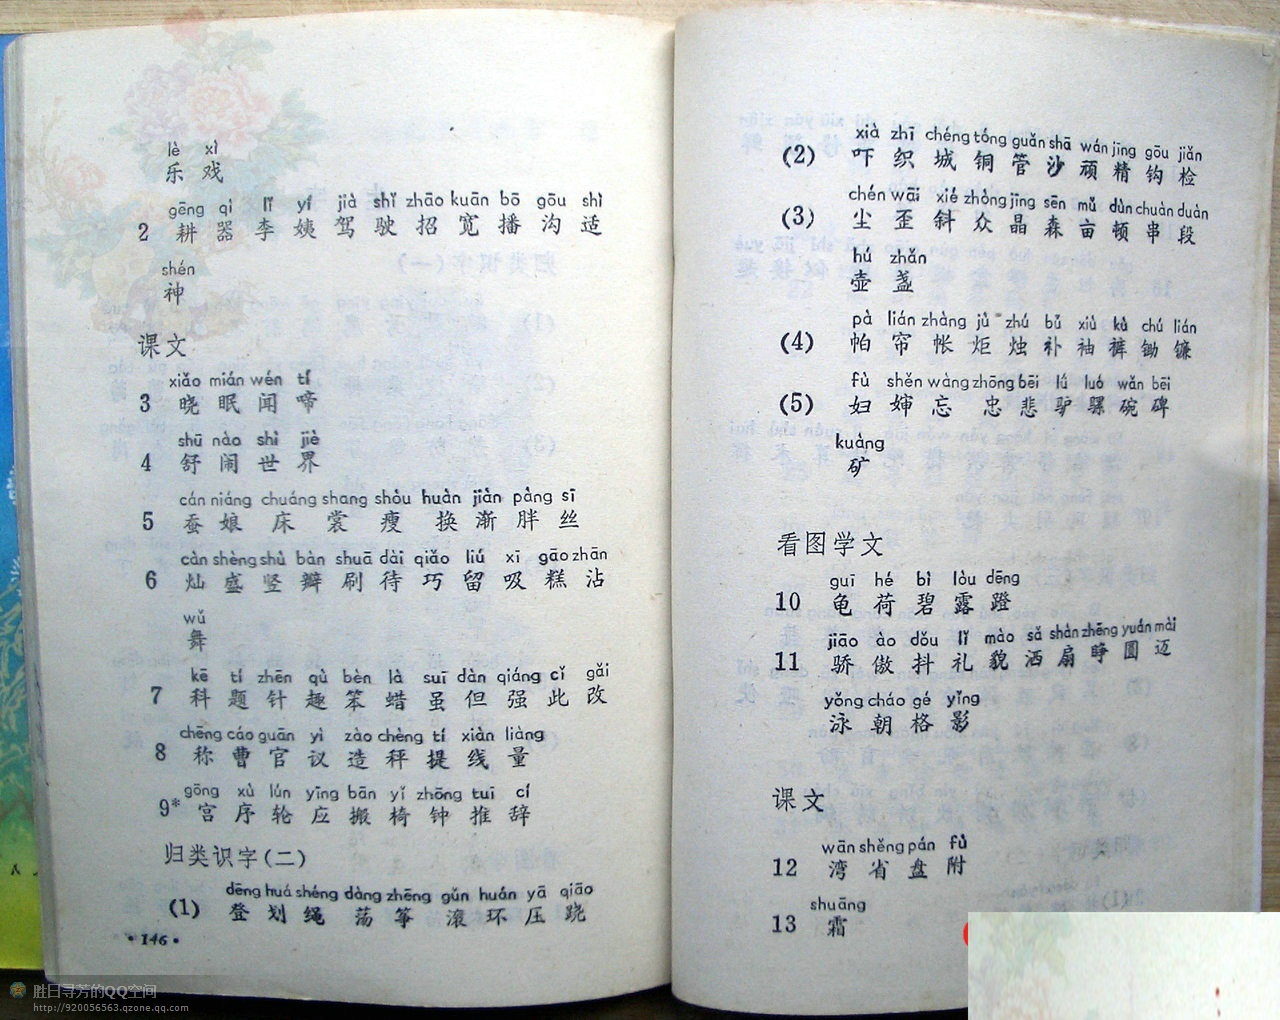 lè xì
乐 戏
gēng qì lǐ yí jià shǐ zhāo kuān bō gōu shì
2 耕 器 李 姨 驾 驶 招 宽 播 沟 适
shén
神
课文
xiǎo mián wén tí
3 晓 眠 闻 啼
shū nào shì jiè
4 舒 闹 世 界
cán niáng chuáng shang shòu huàn jiàn pàng sī
5 蚕 娘 床 裳 瘦 换 渐 胖 丝
càn shèng shù bàn shuā dài qiǎo liú xī gāo zhān
6 灿 盛 竖 瓣 刷 待 巧 留 吸 糕 沾
wǔ
舞
kē tí zhēn qù bèn là suī dàn qiáng cǐ gǎi
7 科 题 针 趣 笨 蜡 虽 但 强 此 改
chēng cáo guān yì zào chèng tí xiàn liàng
8 称 曹 官 议 造 秤 提 线 量
gōng xù lún yīng bān yǐ zhōng tuī cí
9* 宫 序 轮 应 搬 椅 钟 推 辞
归类识字(二)
dēng huá shéng dàng zhēng gǔn huán yā qiāo
(1) 登 划 绳 荡 筝 滚 环 压 跷
·146·
xià zhī chéng tóng guǎn shā wán jīng gōu jiǎn
(2) 吓 织 城 铜 管 沙 顽 精 钩 检
chén wāi xié zhòng jīng sēn mǔ dùn chuàn duàn
(3) 尘 歪 斜 众 晶 森 亩 顿 串 段
hú zhǎn
壶 盏
pà lián zhàng jù zhú bǔ xiù kù chú lián
(4) 帕 帘 帐 炬 烛 补 袖 裤 锄 镰
fù shěn wàng zhōng bēi lǘ luó wǎn bēi
(5) 妇 婶 忘 忠 悲 驴 骡 碗 碑
kuàng
矿
看图学文
guī hé bì lòu dēng
10 龟 荷 碧 露 蹬
jiāo ào dǒu lǐ mào sǎ shàn zhēng yuán mài
11 骄 傲 抖 礼 貌 洒 扇 睁 圆 迈
yǒng cháo gé yǐng
泳 朝 格 影
课文
wān shěng pán fù
12 湾 省 盘 附
shuāng
13 霜
胜日寻芳的QQ空间
http://920056563.qzone.qq.com